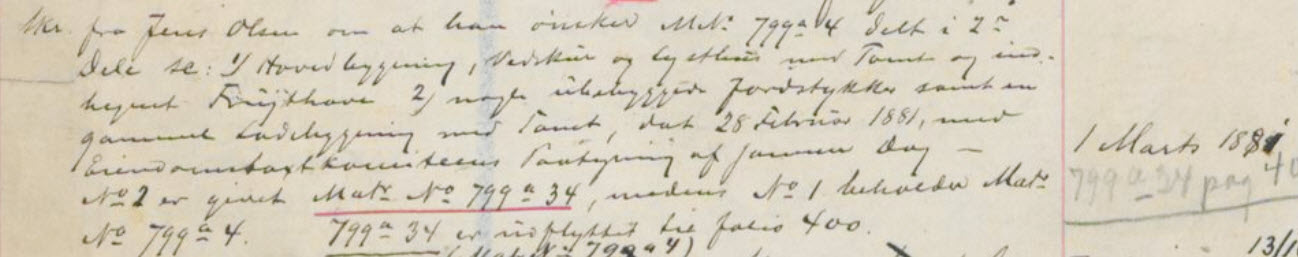 Skr. fra Jens Olsen om at han ønsker M.Nr. 799ª 4 delt i 2de
Dele sc: 1) Hovedbygning, Vedskur og Lysthus med Tomt og ind-
hegnet Frugthave 2) nogle ubebyggede Jordstykker samt en
gammel Ladebygning med Tomt, dat 28 Februar 1881, med
Eiendomstaxtkomiteens Paategning af samme Dag —
No 2 er givet Matr No 799ª 34, medens No 1 beholder Matr
No 799ª 4. 799ª 34 er udflyttet til folio 400.
(Matr. Nr. 799ª 4)
1 Marts 1881
799ª 34 pag 40
13/1